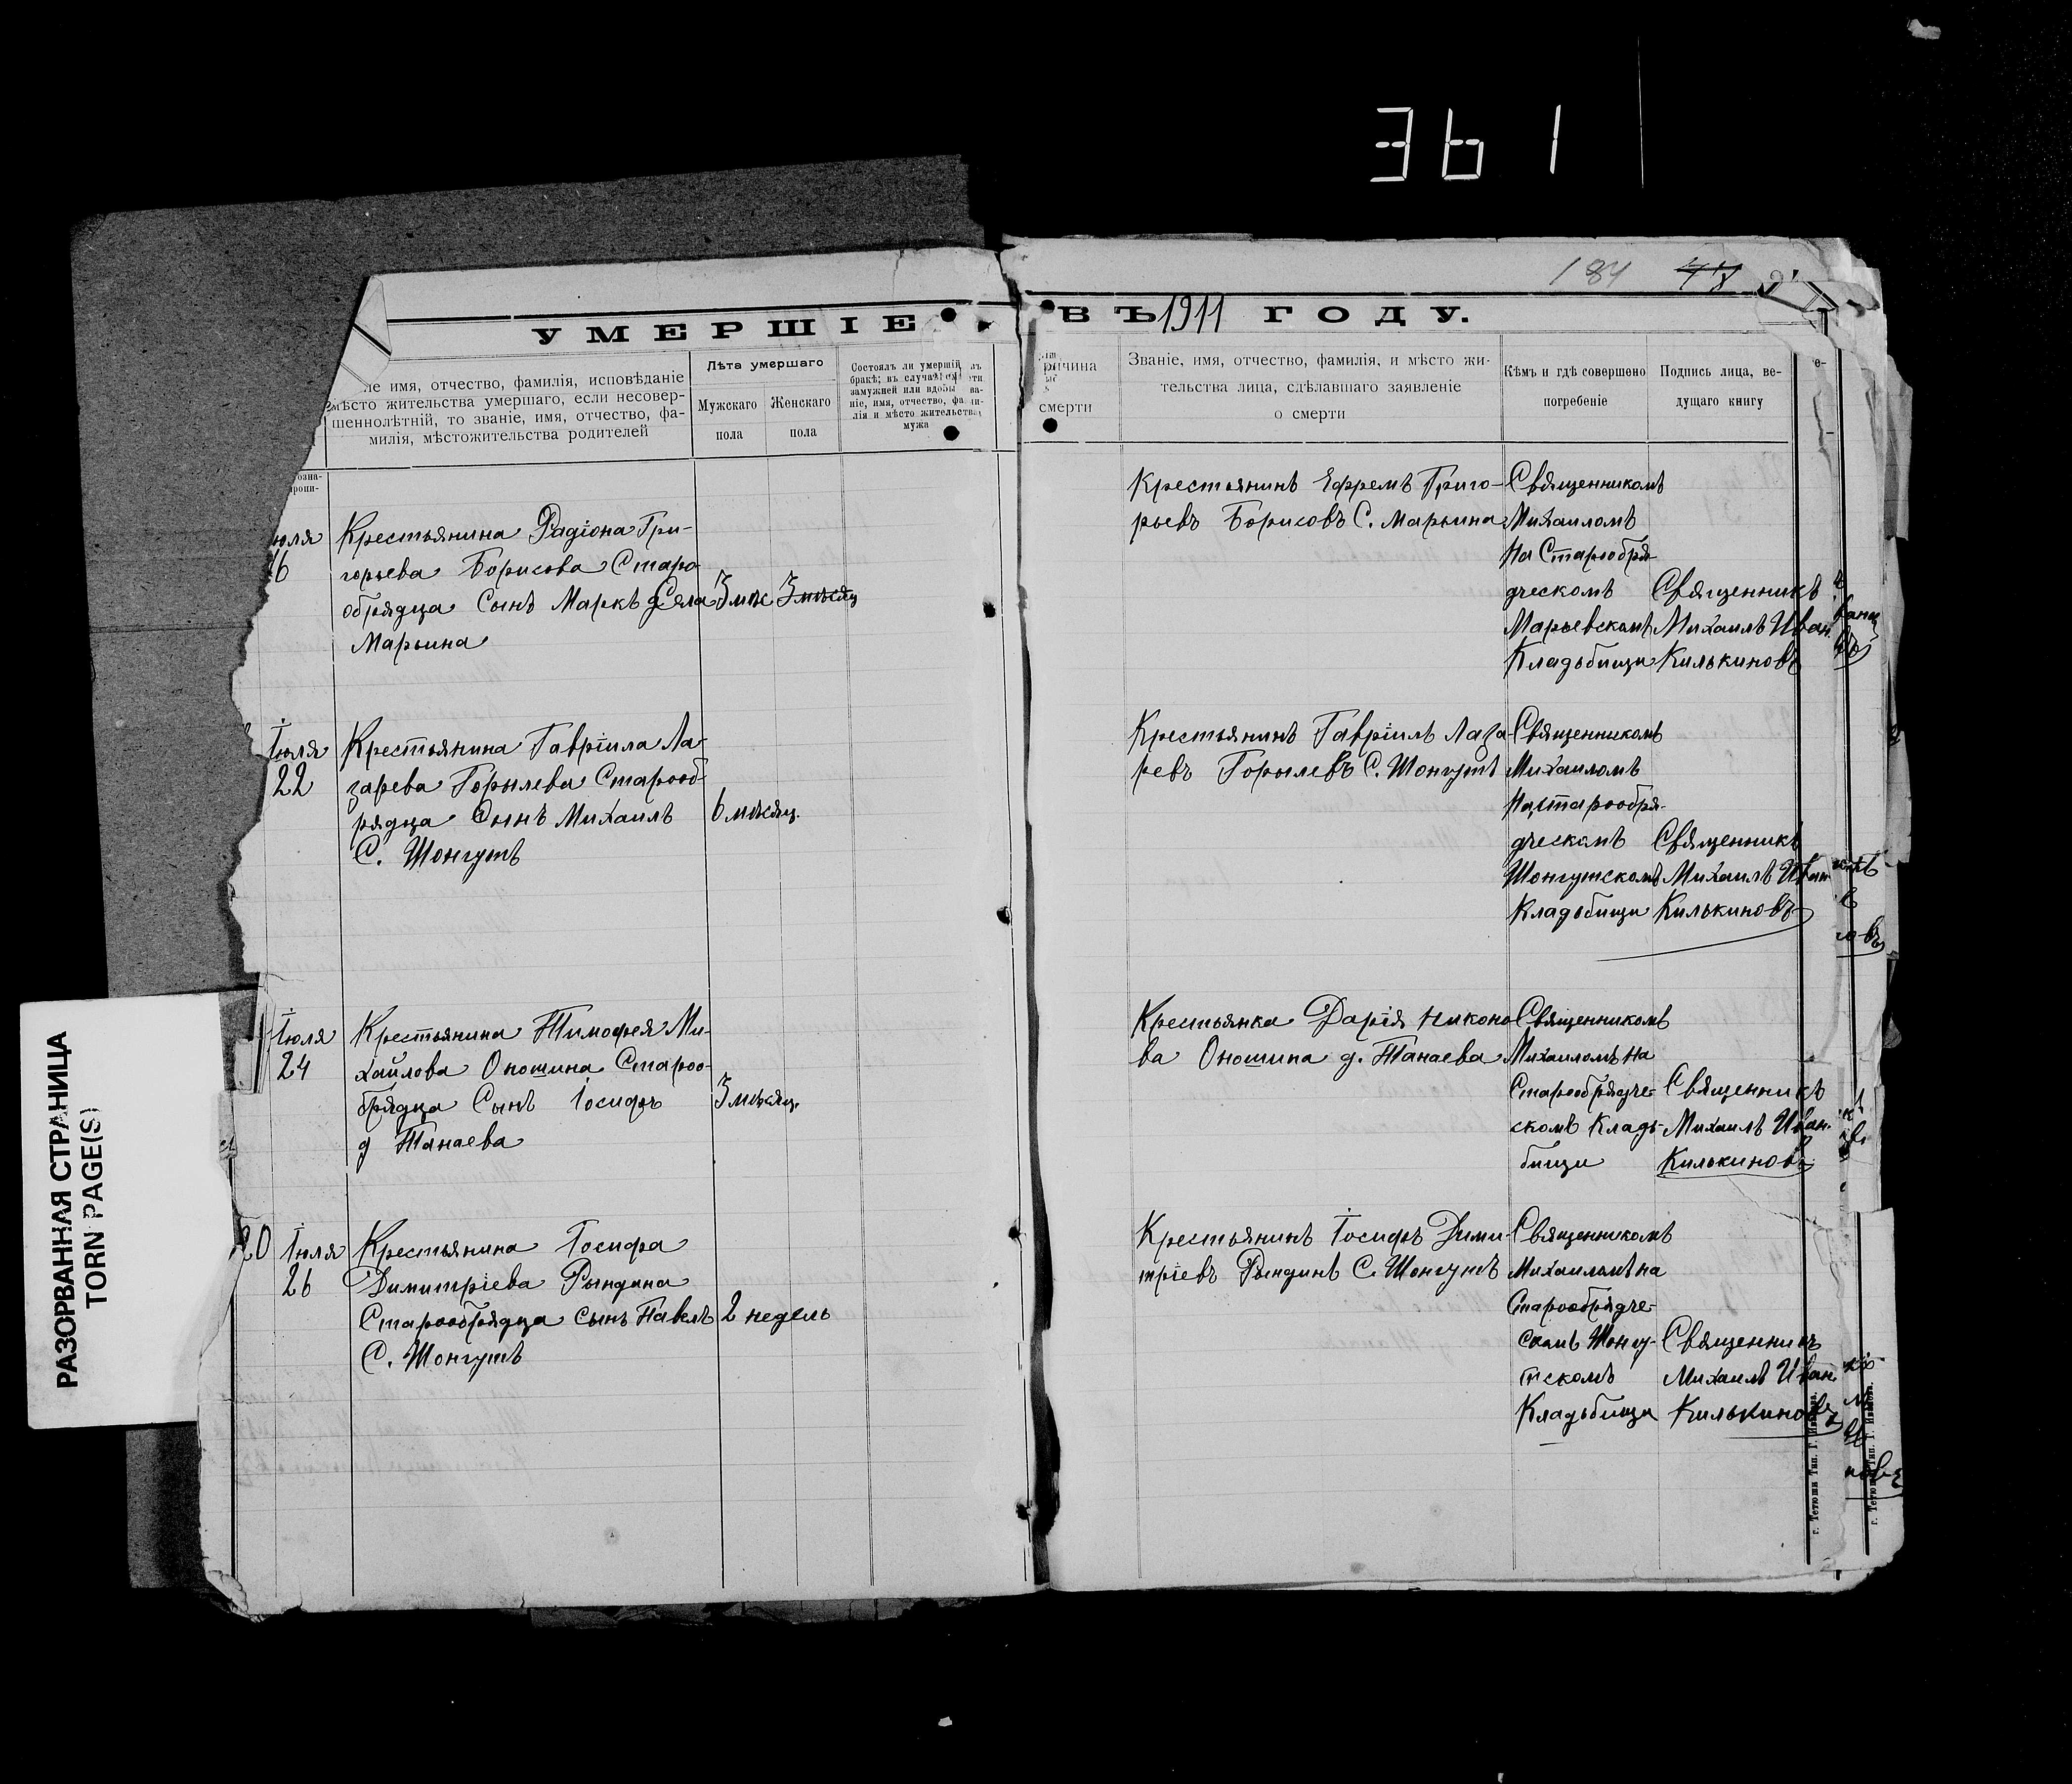 361
184 78
УМЕРШІЕ ВЪ 1911 ГОДУ.
имя, отчество, фамилія, исповѣданіе
мѣсто жительства умершаго, если несовер-
шеннолѣтній, то званіе, имя, отчество, фа-
милія, мѣстожительства родителей
Лѣта умершаго
Мужскаго пола
Женскаго пола
Состоялъ ли умершій въ
бракѣ; въ случаѣ
замужней или вдовы
ніе, имя, отчество, фами-
лія и мѣсто жительства
мужа
ричина
смерти
Званіе, имя, отчество, фамилія, и мѣсто жи-
тельства лица, сдѣлавшаго заявленіе
о смерти
Кѣмъ и гдѣ совершено
погребеніе
Подпись лица, ве-
дущаго книгу
юля
16
Крестьянина Радіона Гри-
горьева Борисова Старо
обрядца Сынъ Маркъ Села
Марьина
3 мѣс
3 мѣсяц
Крестьянинъ Ефремъ Григо-
рьевъ Борисовъ С. Марьина
Священникомъ
Михаиломъ
На Старообря-
дческомъ
Марьевскомъ
Кладьбищи
Священникъ
Михаилъ Иван.
Килькиновъ
Іюля
22
Крестьянина Гавріила Ла-
зарева Горылева Старооб-
рядца Сынъ Михаилъ
С. Шонгутъ
6 мѣсяц.
Крестьянинъ Гавріилъ Лаза-
ревъ Горылевъ С. Шонгутъ
Священникомъ
Михаиломъ
На старообря-
дческомъ
Шонгутскомъ
Кладьбищи
Священникъ
Михаилъ Иван
Килькиновъ
Іюля
24
Крестьянина Тимофея Ми-
хайлова Оношина Староо-
брядца Сынъ Іосифъ
д Танаева
3 мѣсяц.
Крестьянка Дарія Никоно
ва Оношина д. Танаева
Священникомъ
Михаиломъ На
Старообрядче-
скомъ Кладь-
бищи
Священникъ
Михаилъ Иван.
Килькиновъ
20
Іюля
26
Крестьянина Іосифа
Димитріева Рындина
Старообрядца сынъ Павелъ
С. Шонгутъ
2 недель
Крестьянинъ Іосифъ Дими-
тріевъ Рындинъ С. Шонгутъ
Священникомъ
Михаиломъ на
Старообрядче-
скомъ Шонгу-
тскомъ
Кладьбищи
Священникъ
Михаилъ Иван.
Килькиновъ
г. Тетюши Тип. Г. Иванова.
РАЗОРВАННАЯ СТРАНИЦА
TORN PAGE(S)